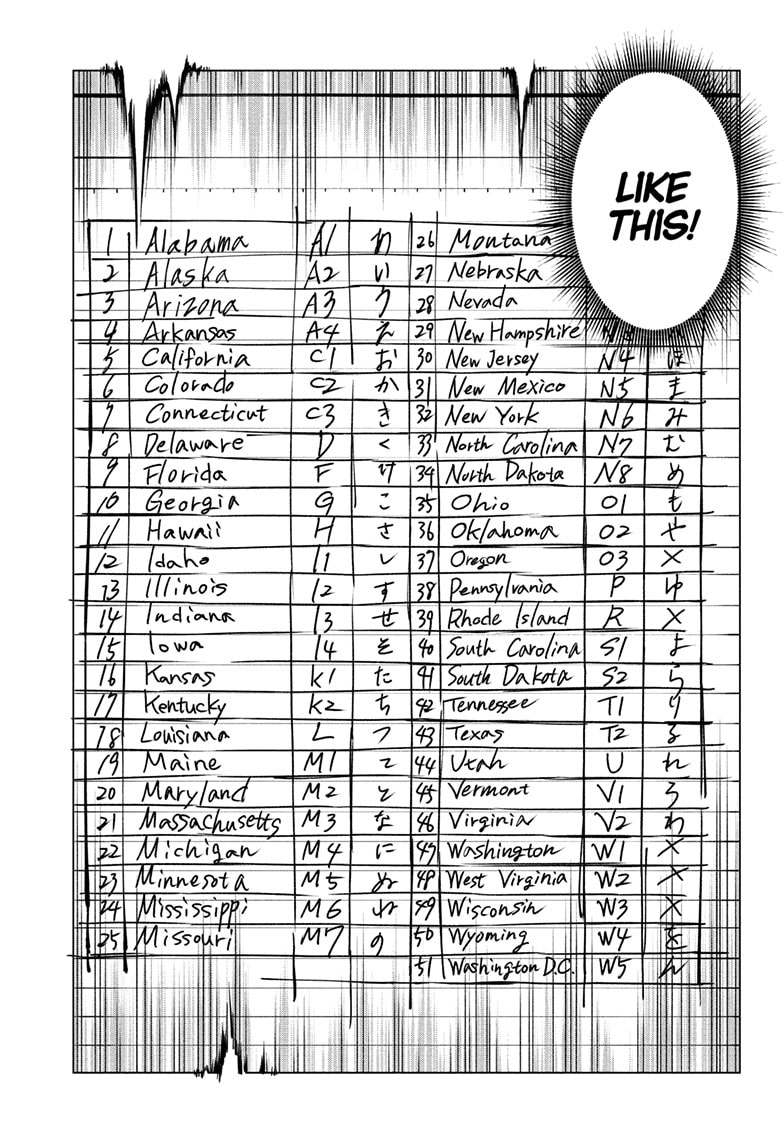 LIKE
THIS!
1 Alabama A1 26 Montana
2 Alaska A2 い 27 Nebraska
3 Arizona A3 う 28 Nevada
4 Arkansas A4 え 29 New Hampshire
5 California C1 お 30 New Jersey N4 ほ
6 Colorado C2 か 31 New Mexico N5 ま
7 Connecticut C3 き 32 New York N6 み
8 Delaware D く 33 North Carolina N7 む
9 Florida F け 34 North Dakota N8 め
10 Georgia G こ 35 Ohio O1 も
11 Hawaii H さ 36 Oklahoma O2 や
12 Idaho I1 し 37 Oregon O3 ×
13 Illinois I2 す 38 Pennsylvania P ゆ
14 Indiana I3 せ 39 Rhode Island R ×
15 Iowa I4 そ 40 South Carolina S1 よ
16 Kansas K1 た 41 South Dakota S2 ら
17 Kentucky K2 ち 42 Tennessee T1 り
18 Louisiana L つ 43 Texas T2 る
19 Maine M1 て 44 Utah U れ
20 Maryland M2 と 45 Vermont V1 ろ
21 Massachusetts M3 な 46 Virginia V2 わ
22 Michigan M4 に 47 Washington W1 ×
23 Minnesota M5 ぬ 48 West Virginia W2 ×
24 Mississippi M6 ね 49 Wisconsin W3 ×
25 Missouri M7 の 50 Wyoming W4 を
51 Washington D.C. W5 ん